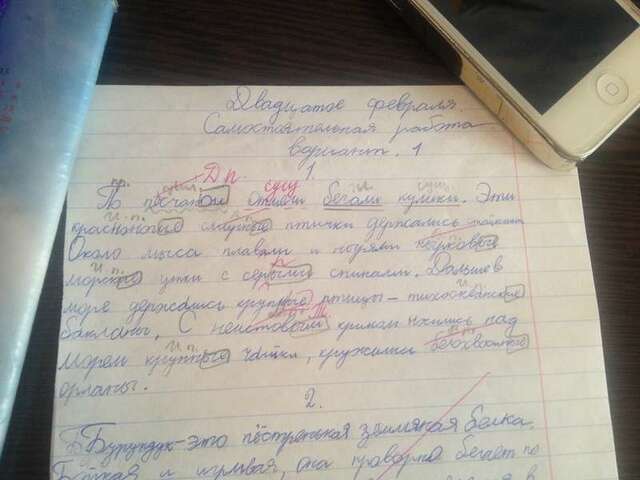 Двадцатое февраля.
Самостоятельная работа
вариант. 1
1.
Д п. сущ
пр. прил. гл. сущ.
По песчаной отмели бегали кулики. Эти
и. п.
красноногие смирные птички держались стайками
Около мыса плавали и ныряли
и. п.
морские утки с серыми спинами. Дальше в
море держались крупные птицы – тихоокеанские
бакланы, С неистовым криком носились над
и. п. и. п.
морем крупные чайки, кружились белохвостые
орланы.
2.
Бурундук – это пёстренькая земляная белка.
Бойкая и игривая, она проворно бегает по
в